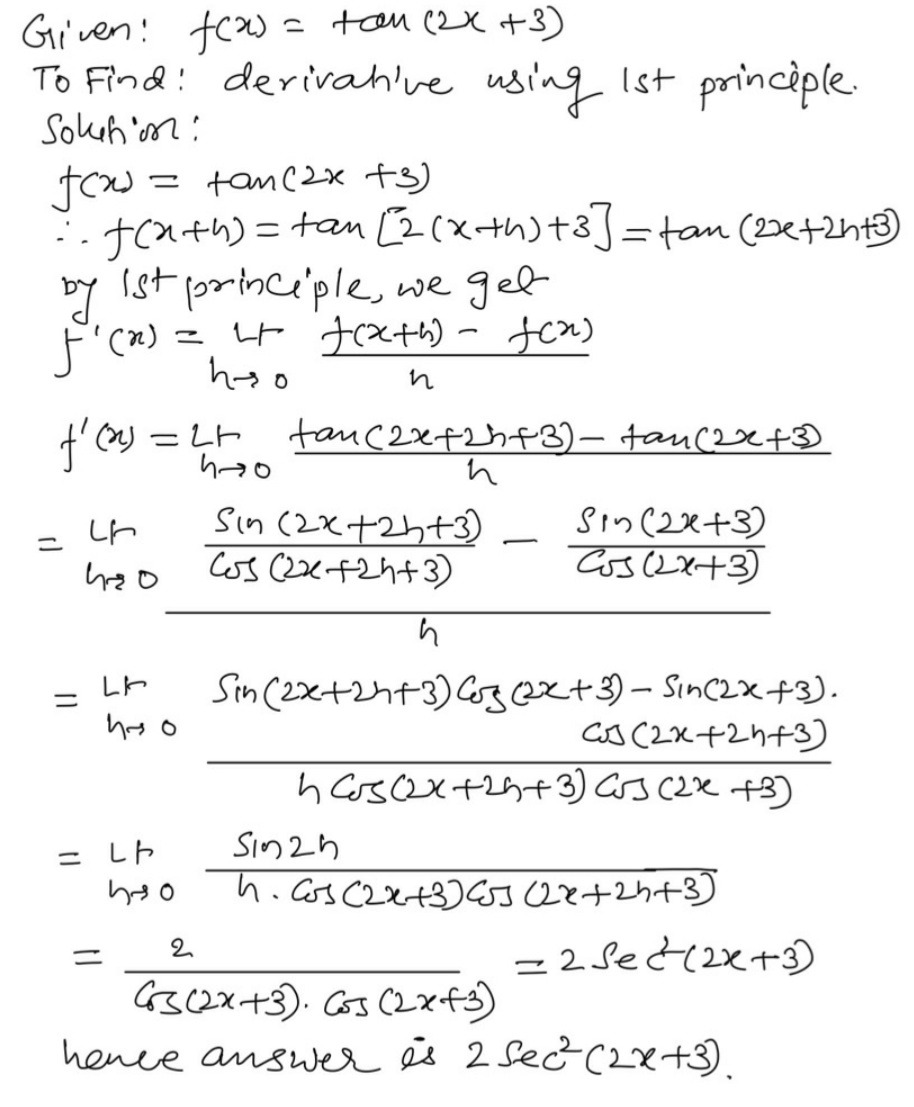 Given: f(x) = tan (2x +3)
To Find: derivative using 1st principle.
Solution:
f(x) = tan(2x +3)
∴ f(x+h) = tan [2(x+h)+3] = tan (2x+2h+3)
by 1st principle, we get
f'(x) = Lt h→0 f(x+h) - f(x) / h
f'(x) = Lt h→0 tan(2x+2h+3) - tan(2x+3) / h
= Lt h→0 Sin (2x+2h+3) / Cos (2x+2h+3) - Sin (2x+3) / Cos (2x+3) / h
= Lt h→0 Sin(2x+2h+3) Cos(2x+3) - Sin(2x+3).
Cos (2x+2h+3)
h Cos(2x+2h+3) Cos (2x +3)
= Lt h→0 Sin2h / h . Cos (2x+3) Cos (2x+2h+3)
= 2 / Cos(2x+3). Cos (2x+3) = 2 Sec²(2x+3)
hence answer is 2 Sec² (2x+3).